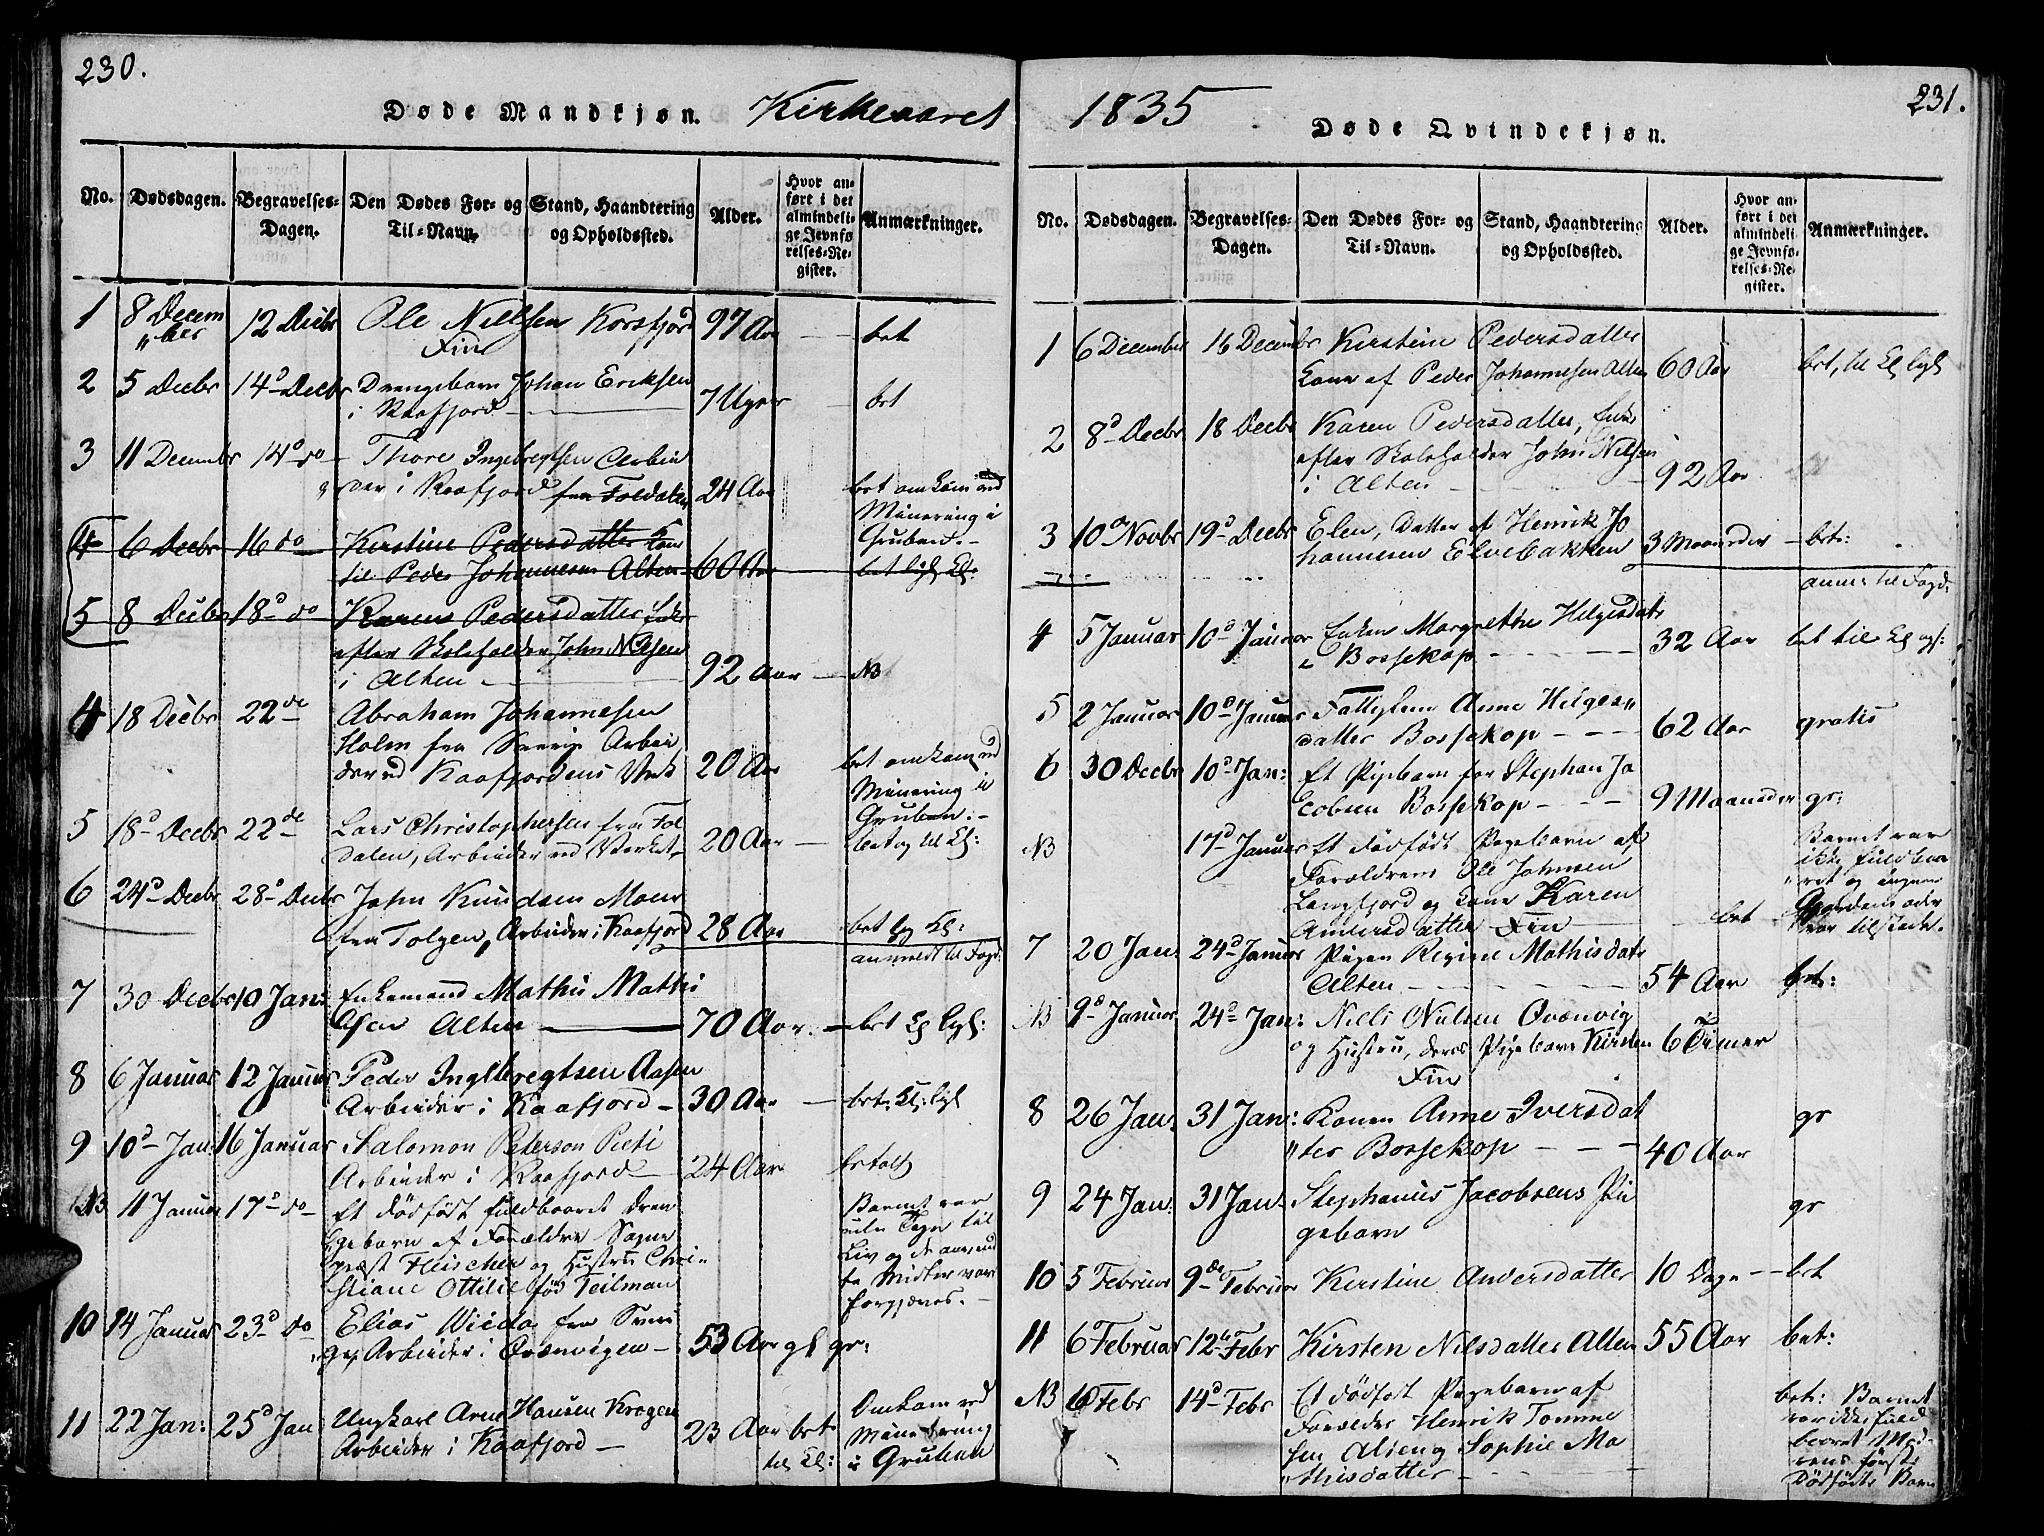 230.
Døde Mandkjøn. Kirkeaaret
No. Dødsdagen. Begravelses-Dagen. Den Dødes For- og Til-Navn. Stand, Haandtering og Opholdssted. Alder. Hvor anført i det almindelige Jevnførelses-Register. Anmærkninger.
1 8 Decem 12 Decbr Ole Nielsen Korsfjord 97 Aar — bet
"ber Fin
2 5 Decbr 14d Decbr Drengebarn Johan Eriksen 7 Uger bet
i Kaafjord
3 11 Decembr 14d do Thore Ingebregtsen Arbei
der i Kaafjord fra Foldalen 24 Aar bet omkom ved
Minering i
Gruben.
4 6 Decbr 16 do Kirstine Pedersdatter Kone
til Peder Johannesen Alten 60 Aar bet ligl Kl:
5 8 Decbr 18d do Karen Pedersdatter Enke
efter Skoleholder John Nilsen
i Alten 92 Aar — NB
4 18 Decbr 22de Abraham Johannesen
Holm fra Sverig Arbei
der ved Kaafjordens Værk 20 Aar bet omkom ved
Minering i
Gruben.
5 18d Decbr 22de Lars Christophersen fra Fol
dalen, Arbeider ved Værket 20 Aar bet og til Kl:
6 24d Decbr 28d Decbr John Knudsen Moen
fra Tolgen, Arbeider i Kaafjord 28 Aar bet lig Kl:
anmeldt til Fogd.
7 30 Decbr 10 Jan: Enkemand Mathis Mathi
sen Alten 70 Aar. — bet Kl ligl:
8 6 Januar 12 Januar Peder Ingebregtsen Aasen
Arbeider i Kaafjord 30 Aar — bet: Kl: ligl
9 10d Jan: 16 Januar Salomon Peterson Pieti
Arbeider i Kaafjord 24 Aar betalt
NB 11 Januar 17d do Et dødfødt fuldbaaret Dren
gebarn af Forældre Sogne
præst Fleischer og Hustru Chri
stiane Ottilie fød Teilman
Barnet var
uden Tegn til
Liv og de anvend
te Midler vare
forgjæves.
10 14 Januar 23d do Elias Wieda fra Sveri
ge, Arbeider i Qvænvigen 53 Aar gl gr:
11 22 Jan: 25d Jan Ungkarl Arne Hansen Krogen
Arbeider i Kaafjord 23 Aar bet
til Kl:
Omkom ved
Minedring
i Gruben
1835
Døde Qvindekjøn.
231.
No. Dødsdagen. Begravelses-Dagen. Den Dødes For- og Til-Navn. Stand, Haandtering og Opholdssted. Alder. Hvor anført i det almindelige Jevnførelses-Register. Anmærkninger.
1 6 December 16 December Kirstine Pedersdatter
Kone af Peder Johannesen Alten 60 Aar bet, til Kl ligl
2 8d Decbr 18 Decbr Karen Pedersdatter, Enke
efter Skoleholder John Nilsen
i Alten 92 Aar
3 10de Novbr 19d Decbr Elen, Datter af Henrik Jo
hannesen Elvebakken 3 Maaneder — bet:
anm: til Fogd.
4 5 Januar 10d Januar Enken Margrethe Helgesdatr
i Bossekop 32 Aar bet til Kl ogs:
5 2 Januar 10d Januar Fattiglem Anne Helges"
datter Bossekop 62 Aar gratis
6 30 Decbr 10d Jan: Et Pigebarn for Stephan Ja
cobsen Bossekop 9 Maaneder gr:
NB 17d Januar Et dødfødt Pigebarn af
Forældrene Ole Johnsen
Langfjord og Kone Karen
Andersdatter Fin bet
Barnet var
ikke fuldbaa
ret og ingen
Gjordemoder
var tilstede.
7 20 Jan. 24d Januar Pigen Regine Mathisdatr
Alten 54 Aar bet:
NB 9d Januar 24d Jan: Niels Nielsen Qvænvig
og Hustru, deres Pigebarn Kirsten 6 Timer
Fin
8 26 Jan. 31 Jan: Konen Anne Iversdat
"ter Bossekop 40 Aar gr
9 24 Jan. 31 Jan. Stephanus Jacobsens Pi
gebarn gr
10 5 Februar 9de Februar Kirstine Andersdatter 10 Dage — bet
11 6 Februar 12te Febr Kirsten Nilsdatter Alten 55 Aar bet:
NB 6 Febr 14d Febr Et dødfødt Pigebarn af
Forældre Henrik Tomme
sen Alten og Sophie Ma
"thisdatter
bet: Barnet
var ikke fuld
baaret Mod
rens første
Dødfødte Barn